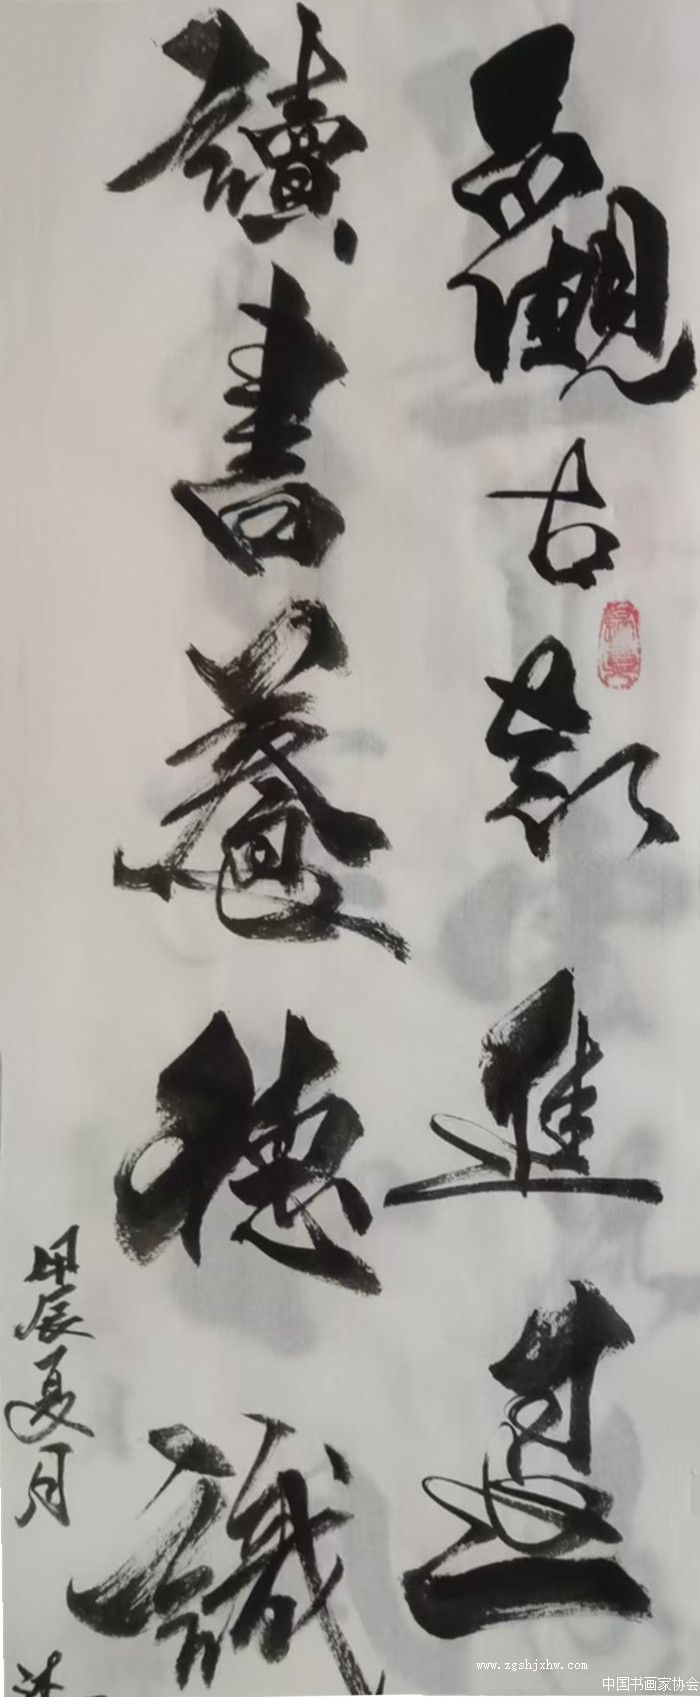 觀古進
讀書養德識
甲辰夏月
www.zgshjxhw.com
中国书画家协会